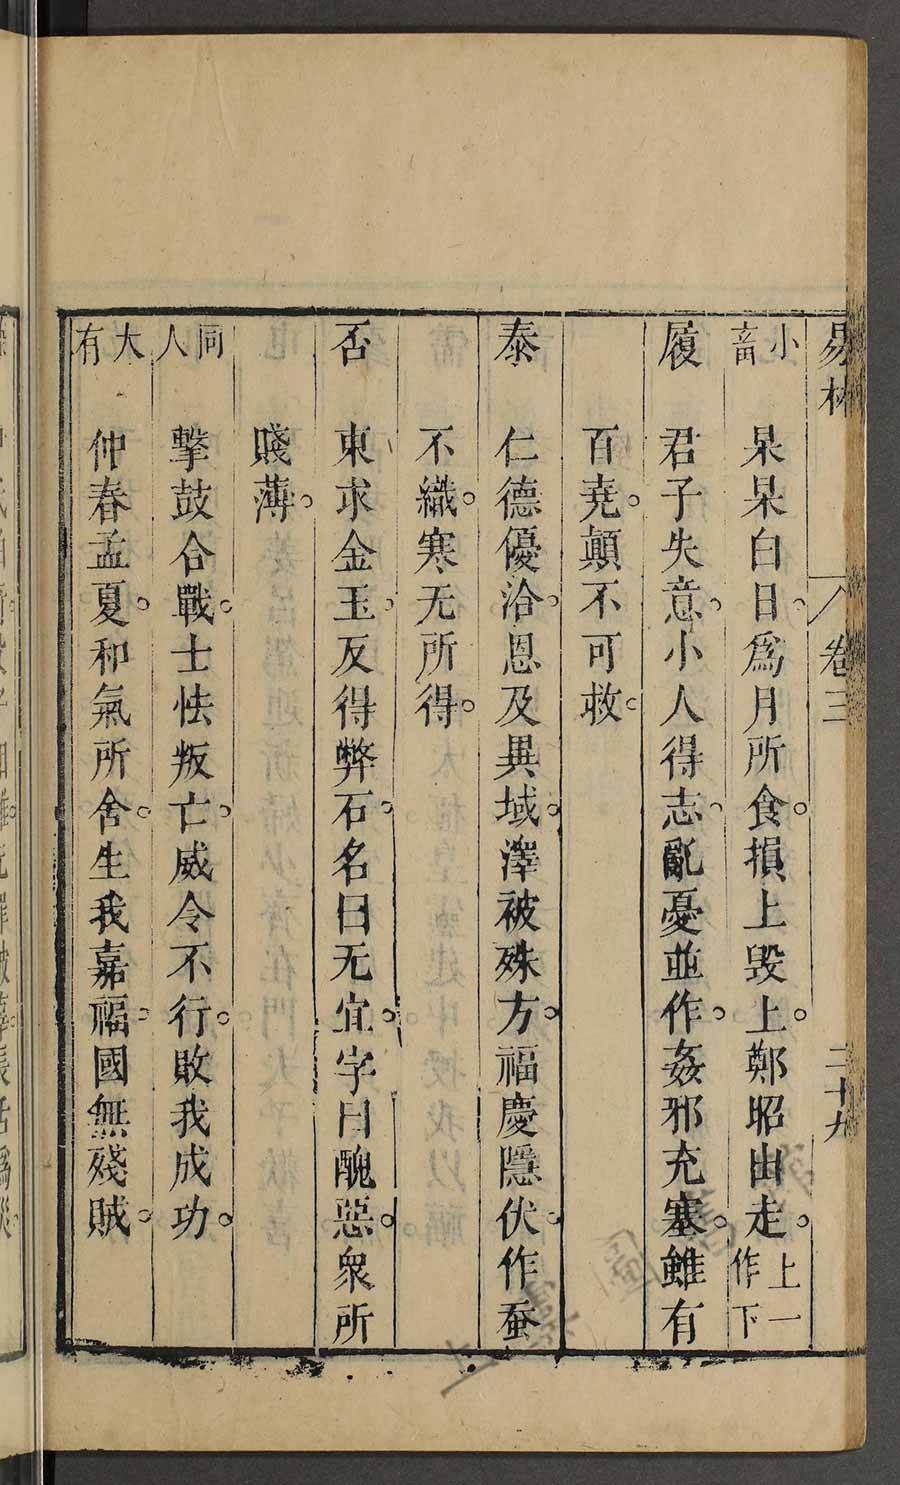 易林 卷三 二十九
小畜 杲杲白日。為月所食。損上毀上。鄭昭出走。上一作下
履 君子失意。小人得志。亂憂並作。姦邪充塞。雖有
百堯。顛不可救。
泰 仁德優洽。恩及異域。澤被殊方。福慶隱伏。作蚕
不織。寒无所得。
否 東求金玉。反得弊石。名曰无宜。字曰醜惡。衆所
賤薄。
同人 擊鼓合戰。士怯叛亡。威令不行。敗我成功。
大有 仲春孟夏。和氣所舍。生我嘉福。國無殘賊。